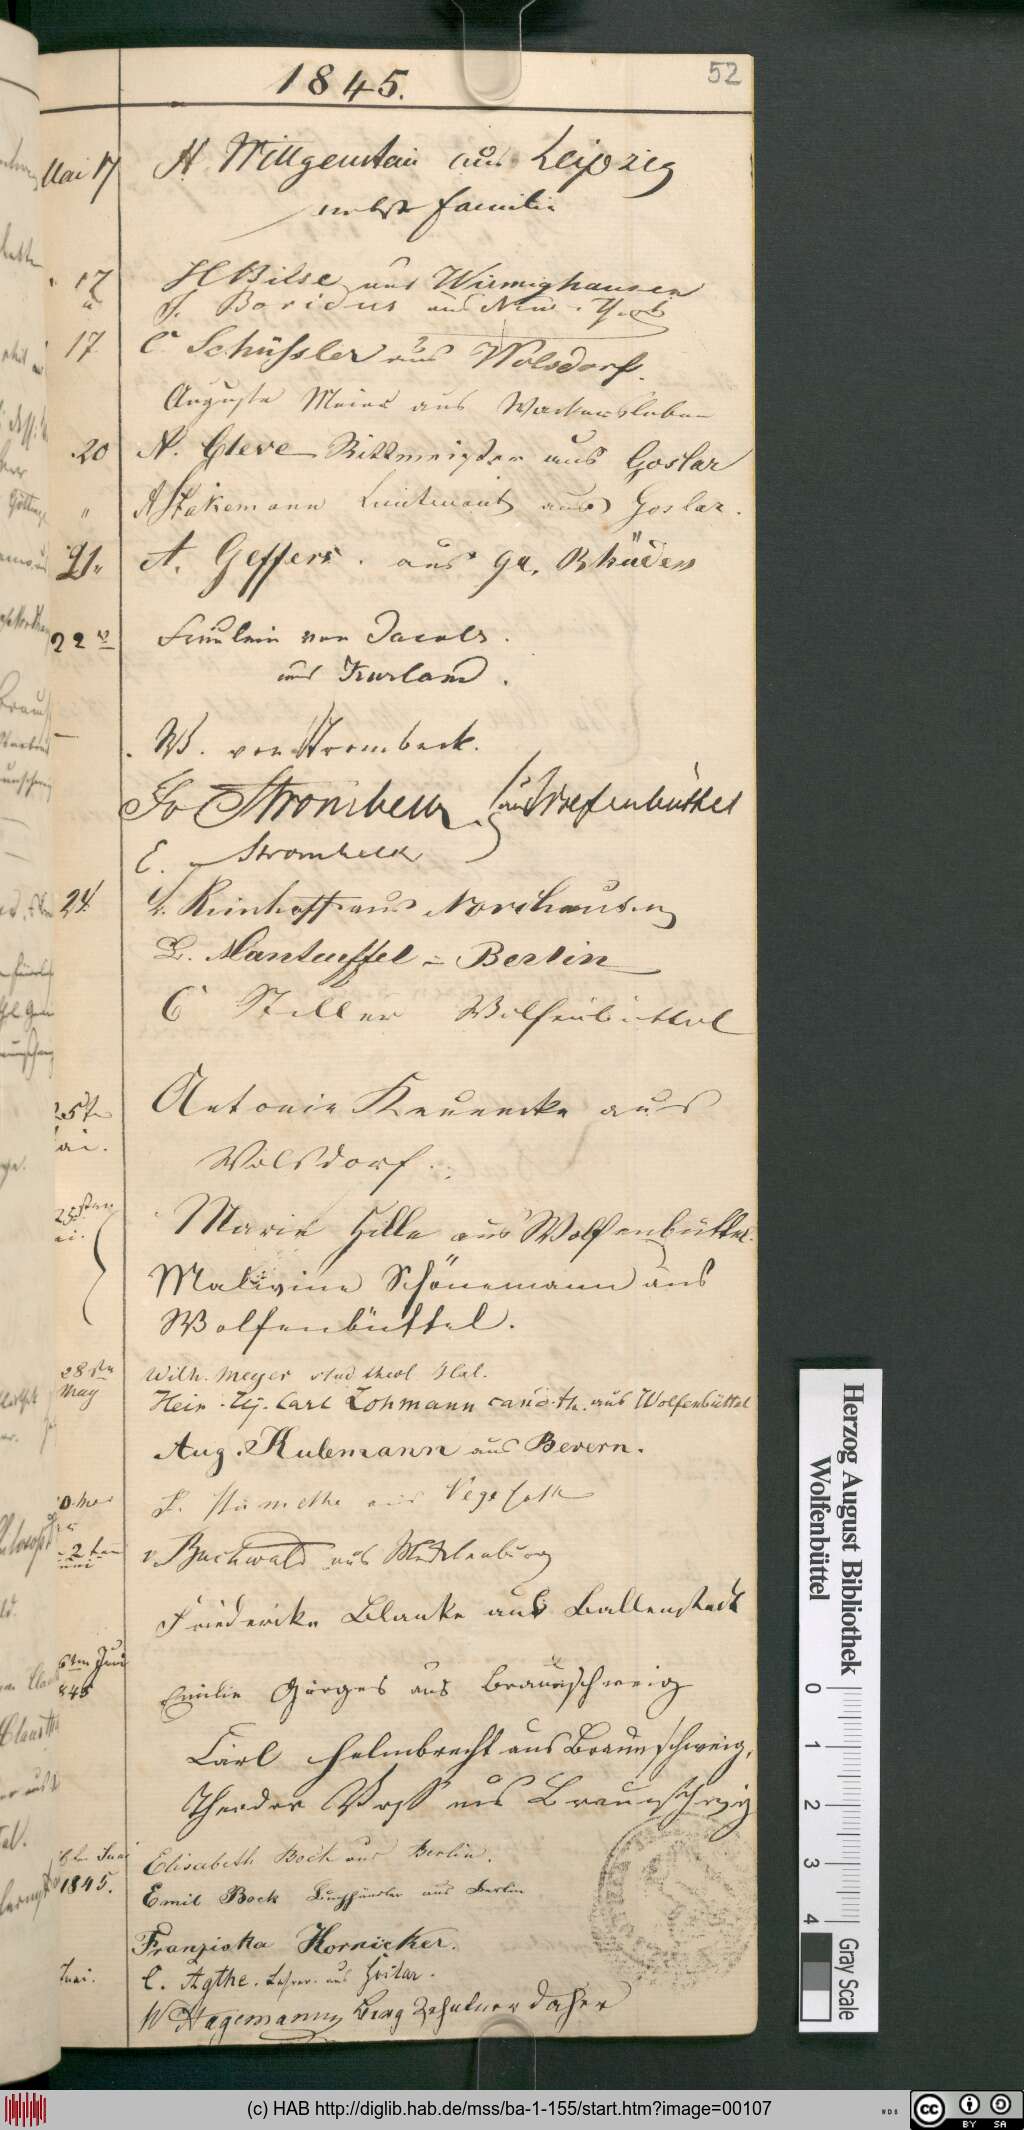 52
1845.
Mai 17 H. Willgenstein aus Leipzig
nebst Familie
17 H Bilse aus Wirmighausen
u J. Boridus aus New-York
17 C. Schüssler aus Wolsdorf.
Auguste Meier aus Wackersleben
20 A. Cleve Rittmeister aus Goslar
" A Stakemann Lieutenant aus Goslar.
21. A. Geffers. aus gr. Rhüden
22 Fräulein von Jacobs.
aus Kurland.
W. von Strombeck.
Strombeck aus Wolfenbüttel
E. v Strombeck
24. L. Reinhoff aus Nordhausen
L. Manteuffel = Berlin
C Stiller Wolfenbüttel
25t Antonie Keunecke aus
Mai. Wolsdorf.
25sten Marie Hille aus Wolfenbüttel.
Malwine Schönemann aus
Wolfenbüttel.
28ste Wilh. Meyer stud theol Hal.
May Hein. Carl Lohmann cand. th. aus Wolfenbüttel
Aug. Kulemann aus Bevern.
aus Vegesack
2ten v. Buchwald aus Mecklenburg
Friedericke Blanke aus Ballenstedt
6ten Juni
1845 Emilie Görges aus Braunschweig
Carl Helmbrecht aus Braunschweig,
Theodor Voss aus Braunschweig
Juni Elisabeth Bock aus Berlin.
1845. Emil Bock aus Berlin
Franziska Kornicker.
Juni. C. Agthe. Lehrer. aus Goslar.
W Hagemann, Berg Zehntner daher
Herzog August Bibliothek
Wolfenbüttel
0 1 2 3 4
Gray Scale
(c) HAB http://diglib.hab.de/mss/ba-1-155/start.htm?image=00107
WDB
cc BY SA